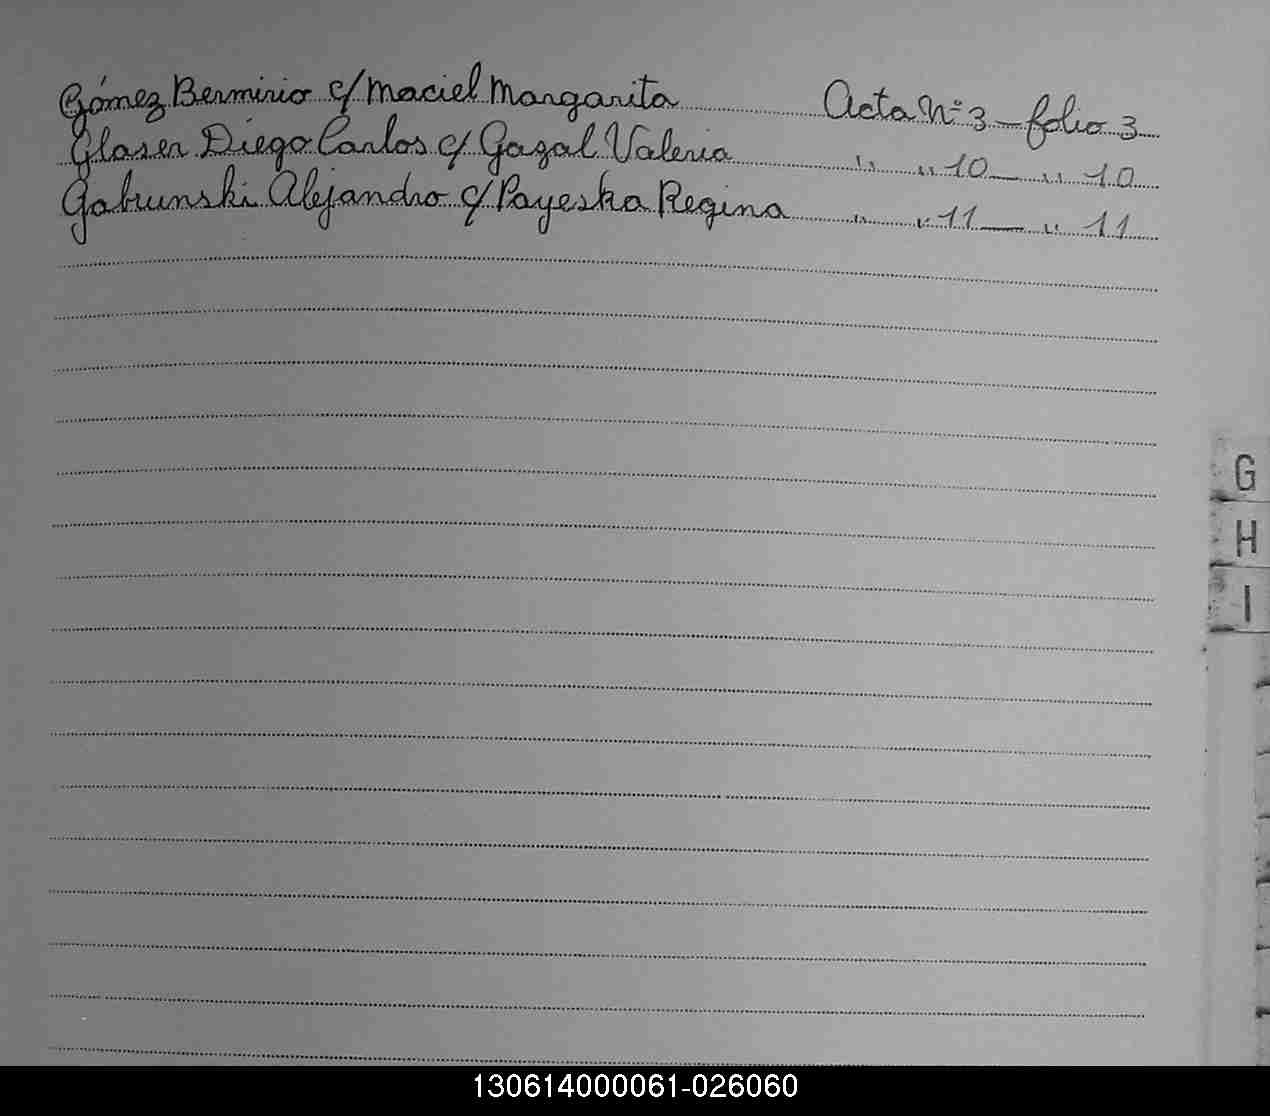 Gómez Bermirio c/ Maciel Margarita Acta Nº 3 - folio 3
Glaser Diego Carlos c/ Gazal Valeria " " 10 — " 10
Gabrunski Alejandro c/ Payeska Regina " " 11 — " 11
G
H
I
130614000061-026060